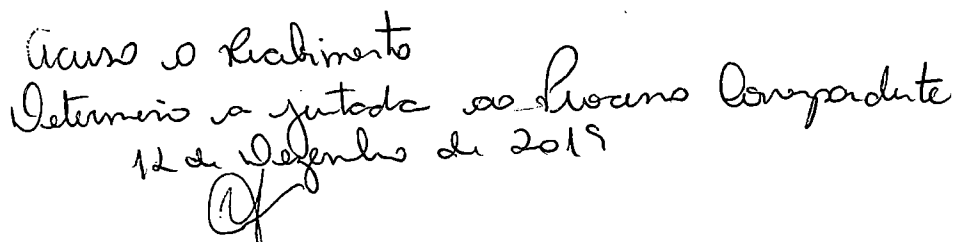 Acuso o Recebimento
Determino a juntada ao Processo Correspondente
12 de Dezembro de 2019